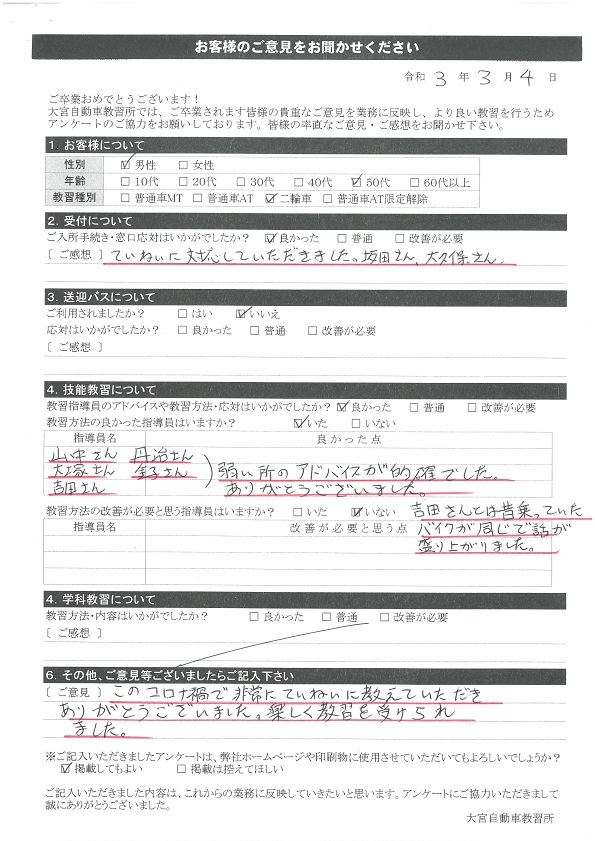 お客様のご意見をお聞かせください
令和 3 年 3 月 4 日
ご卒業おめでとうございます！
大宮自動車教習所では、ご卒業されます皆様の貴重なご意見を業務に反映し、より良い教習を行うため
アンケートのご協力をお願いしております。皆様の率直なご意見・ご感想をお聞かせ下さい。
1. お客様について
性別 ☑男性 □女性
年齢 □10代 □20代 □30代 □40代 ☑50代 □60代以上
教習種別 □普通車MT □普通車AT ☑二輪車 □普通車AT限定解除
2. 受付について
ご入所手続き・窓口応対はいかがでしたか？ ☑良かった □普通 □改善が必要
〔 ご感想 〕 ていねいに対応していただきました。坂田さん、大久保さん.
3. 送迎バスについて
ご利用されましたか？ □はい ☑いいえ
応対はいかがでしたか？ □良かった □普通 □改善が必要
〔 ご感想 〕
4. 技能教習について
教習指導員のアドバイスや教習方法・応対はいかがでしたか？ ☑良かった □普通 □改善が必要
教習方法の良かった指導員はいますか？ ☑いた □いない
指導員名 良かった点
山中さん 丹治さん
大塚さん 金子さん ) 弱い所のアドバイスが的確でした。
吉田さん ありがとうございました。
教習方法の改善が必要と思う指導員はいますか？ □いた ☑いない 吉田さんとは昔乗っていた
指導員名 改善が必要と思う点 バイクが同じで話が
盛り上がりました。
4. 学科教習について
教習方法・内容はいかがでしたか？ □良かった □普通 □改善が必要
〔 ご感想 〕
6. その他、ご意見等ございましたらご記入下さい
〔 ご意見 〕 このコロナ禍で非常にていねいに教えていただき
ありがとうございました。楽しく教習を受けられ
ました。
※ご記入いただきましたアンケートは、弊社ホームページや印刷物に使用させていただいてもよろしいでしょうか？
☑掲載してもよい □掲載は控えてほしい
ご記入いただきました内容は、これからの業務に反映していきたいと思います。アンケートにご協力いただきまして
誠にありがとうございました。
大宮自動車教習所